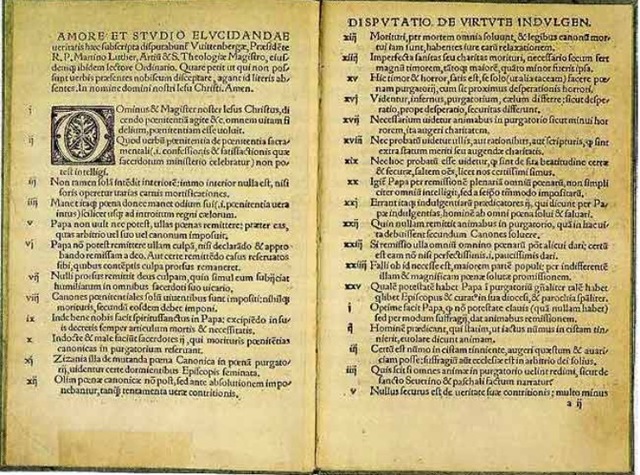 AMORE ET STVDIO ELVCIDANDAE
ueritatis hæc subscripta disputabunť Vuittenbergæ, Præsidẽte
R. P. Martino Luther, Artiũ & S. Theologiæ Magistro, eius-
demq; ibidem lectore Ordinario. Quare petit ut qui non pos-
sunt uerbis præsentes nobiscum disceptare, agant id literis ab-
sentes. In nomine domini nostri Iesu Christi. Amen.
i DOminus & Magister noster Iesus Christus, di
cendo pœnitentiã agite &c. omnem uitam fi
delium, pœnitentiam esse uoluit.
ij Quod uerbũ pœnitentia de pœnitentia sacra-
mentali (.i. confessionis & satisfactionis quæ
sacerdotum ministerio celebratur) non po-
test intelligi.
iij Non tamen solã intẽdit interiorẽ: immo interior nulla est, nisi
foris operetur uarias carnis mortificationes.
iiij Manet itaq; pœna donec manet odium sui (.i. pœnitentia uera
intus) scilicet usq; ad introitum regni cælorum.
v Papa non uult nec potest, ullas pœnas remittere: præter eas,
quas arbitrio uel suo uel canonum imposuit.
vj Papa nõ potest remittere ullam culpã, nisi declarãdo & appro-
bando remissam a deo. Aut certe remittẽdo casus reseruatos
sibi, quibus contẽptis culpa prorsus remaneret.
vij Nulli prorsus remittit deus culpam, quin simul eum subijciat
humiliatum in omnibus sacerdoti suo uicario.
viij Canones pœnitentiales solũ uiuentibus sunt impositi: nihilq;
morituris, secundũ eosdem debet imponi.
ix Inde bene nobis facit spiritussanctus in Papa: excipiẽdo in su-
is decretis semper articulum mortis & necessitatis.
x Indocte & male faciũt sacerdotes ij, qui morituris pœnitẽtias
canonicas in purgatorium reseruant.
xj Zizania illa de mutanda pœna Canonica in pœnã purgato-
rij, uidentur certe dormientibus Episcopis seminata.
xij Olim pœnæ canonicæ nõ post, sed ante absolutionem impo-
nebantur, tanq̃ tentamenta ueræ contritionis.
DISPVTATIO DE VIRTVTE INDVLGEN.
xiij Morituri, per mortem omnia soluunt, & legibus canonũ mor-
tui iam sunt, habentes iure earũ relaxationem.
xiiij Imperfecta sanitas seu charitas morituri, necessario secum fert
magnũ timorem, tãtoq; maiorẽ, quãto minor fuerit ipsa.
xv Hic timor & horror, satis est, se solo (ut alia taceam) facere pœ-
nam purgatorij, cum sit proximus desperationis horrori.
xvj Videntur, infernus, purgatorium, cælum differre: sicut despe-
ratio, prope desperatio, securitas differunt.
xvij Necessarium uidetur animabus in purgatorio sicut minui hor-
rorem, ita augeri charitatem.
xviij Nec probatũ uidetur ullis, aut rationibus, aut scripturis, q̃ sint
extra statum meriti seu augendæ charitatis.
xix Nec hoc probatũ esse uidetur, q̃ sint de sua beatitudine certæ
& securæ, saltem oẽs, licet nos certissimi simus.
xx Igiť Papa per remissionem plenariã omniũ pœnarũ, non simpli
citer omniũ intelligit, sed a seipso tãtũmodo impositarũ.
xxj Errant itaq; indulgentiarũ prædicatores ij, qui dicunt per Pa-
pæ indulgentias, hominẽ ab omni pœna solui & saluari.
xxij Quin nullam remittit animabus in purgatorio, quã in hac ui-
ta debuissent secundum Canones soluere.
xxiij Si remissio ulla omniũ omnino pœnarũ põt alicui dari; certũ
est eam nõ nisi perfectissimis .i. paucissimis dari.
xxiiij Falli ob id necesse est, maiorem partẽ populi: per indifferentẽ
illam & magnificam pœnæ solutæ promissionem.
xxv Qualẽ potestatẽ habet Papa ĩ purgatoriũ gñaliter talẽ habet
q̃libet Episcopus & curatᵒ in sua diocesi, & parochia spãliter.
i Optime facit Papa, q̃ nõ potestate clauis (quã nullam habet)
sed per modum suffragij, dat animabus remissionem.
ij Hominẽ prædicant, qui statim, ut iactus nummus in cistam tin-
nierit, euolare dicunt animam.
iij Certũ est nũmo in cistam tinniente, augeri quæstum & auari-
ciam posse: suffragiũ aũt ecclesiæ est in arbitrio dei solius.
iiij Quis scit si omnes animæ in purgatorio uelint redimi, sicut de
sancto Seuerino & paschali factum narratur.
v Nullus securus est de ueritate suæ contritionis; multo minus
a ij